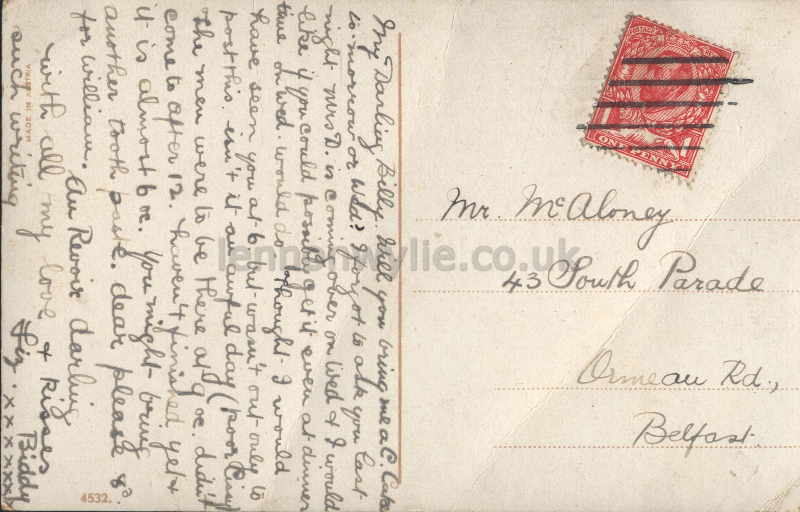 My Darling Billy. Will you bring me a C. Cake
to-morrow or Wed? I forgot to ask you last
night Mrs D. is coming over on Wed & I would
like if you could possibly get it even at dinner
time on Wed. would do. I thought I would
have seen you at 6 but wasn't out only to
post this. isn't it an awful day (poor Cissy
the men were to be there at 9 oc. didn't
come to after 12. haven't finished yet &
it is almost 6 oc. You might bring
another tooth paste. dear please
for William. Au Revoir darling
with all my love & kisses
such writing
Biddy
Liz. x x x x x x x
MADE IN AUSTRIA
4532.
ONE PENNY
POSTAGE
Mr. McAloney
43 South Parade
Ormeau Rd.,
Belfast.
lennonwylie.co.uk